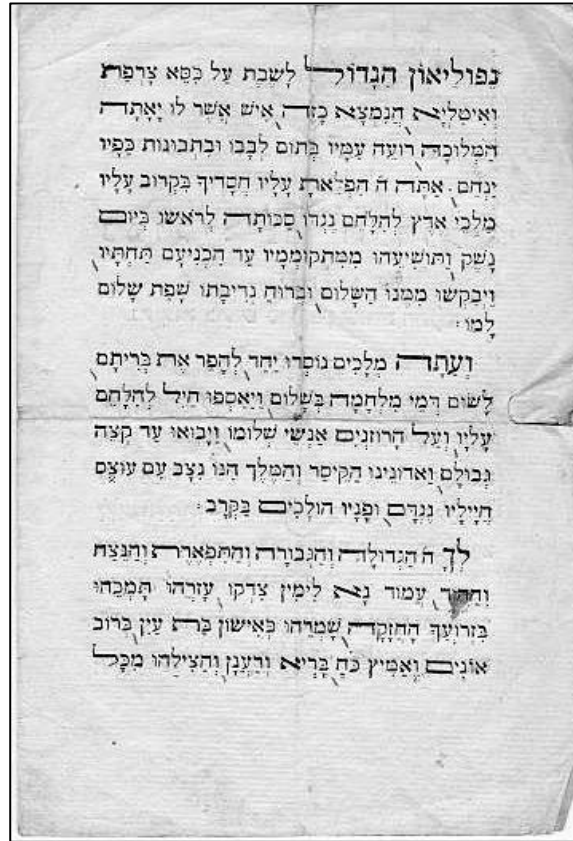 נפּוֹלֵיאוֹן הַגָדוֹל לָשֶׁבֶת עַל כִּסֵא צָרְפַת
וְאִיטַלְיָא הֲנִמְצָא כָזֶה אִישׁ אֲשֶׁר לוֹ יָאָתָה
הַמְלוּכָה רוֹעֶה עַמָיו בְּתוֹם לְבָבוֹ וּבִתְבוּנוֹת כַּפָיו
יַנְחֵם׃ אַתָּה הֹ הִפְלֵאתָ עָלָיו חֲסָדֶיךָ בִּקְרוֹב עָלָיו
מַלְכֵי אֶרֶץ לְהִלָחֵם נֶגְדוֹ סַכּוֹתָה לְרֹאשׁוֹ בְּיוֹם
נֶשֶׁק וַתּוֹשִׁיעֵהוּ מִמִתְקוֹמְמָיו עַד הִכְנִיעָם תַּחְתָּיו
וַיְבַקְשׁוּ מִמֶנוּ הַשָׁלוֹם וּבְרוּחַ נְדִיבָתוֹ שָׂפַת שָׁלוֹם
לָמוֹ׃
וְעַתָּה מְלָכִים נוֹסְדוּ יַחַד לְהָפֵר אֶת בְּרִיתָם
לָשׂוּם דְמֵי מִלְחָמָה בְּשָׁלוֹם וַיַאַסְפוּ חַיִל לְהִלָחֵם
עָלָיו וְעַל הָרוֹזְנִים אַנְשֵׁי שְׁלוֹמוֹ וַיָבוֹאוּ עַד קְצֵה
גְבוּלָם וַאדוֹנֵינוּ הַקֵיסַר וְהַמֶלֶךְ הִנוֹ נִצָב עִם עוֹצֶם
חֲיָילָיו נֶגְדָם וּפָנָיו הוֹלְכִים בַּקְרָב׃
לְךָ הֹ הַגְדוּלָה וְהַגְבוּרָה וְהַתִּפְאֶרֶת וְהַנֵצַח
וְהַהוֹד עֲמוֹד נָא לִימִין צִדְקוֹ עָזְרֵהוּ תָּמְכֵהוּ
בִּזְרוֹעֲךָ הַחֲזָקָה שָׁמְרֵהוּ כְּאִישׁוֹן בַּת עַיִן בְּרוֹב
אוֹנִים וְאַמִיץ כֹּחַ בָּרִיא וְרַעֲנָן וְהַצִילֵהוּ מִכָּל